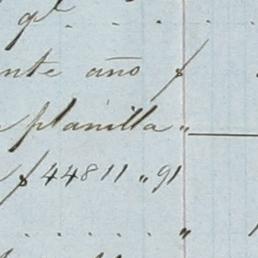 nte año $
planilla "
$ 44811 " 91
. . . . . . . "